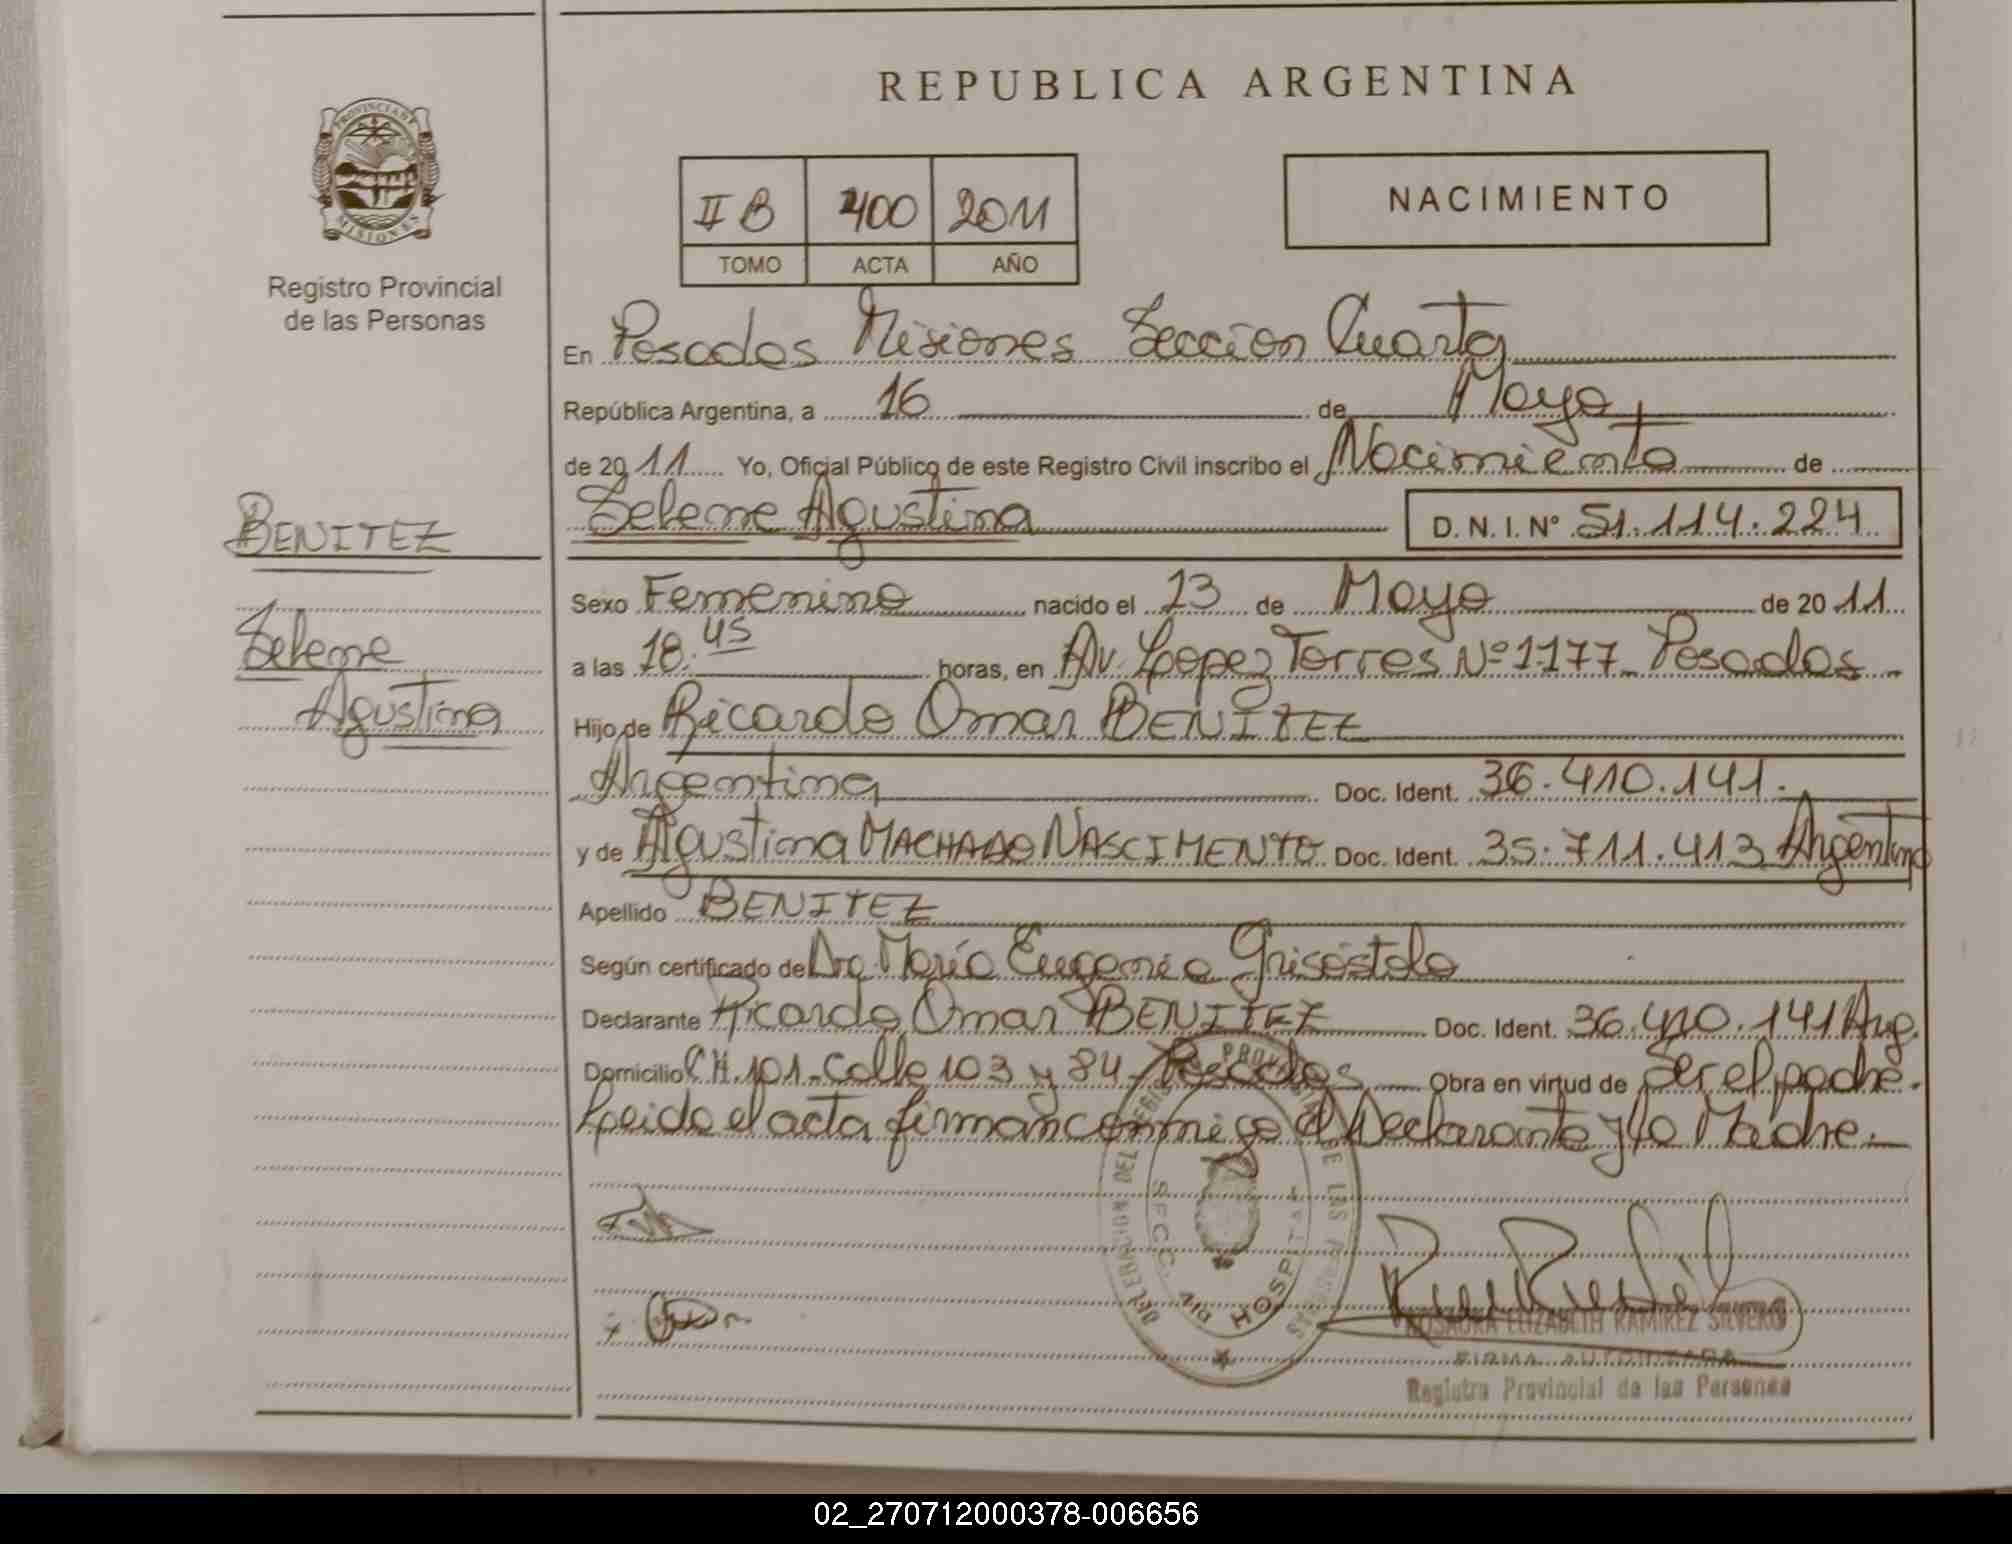 REPUBLICA ARGENTINA
PROVINCIA DE MISIONES
Registro Provincial
de las Personas
II B 400 2011
TOMO ACTA AÑO
NACIMIENTO
En Posadas Misiones Seccion Cuarta
República Argentina, a 16 de Mayo
de 2011 Yo, Oficial Público de este Registro Civil inscribo el Nacimiento de
Selene Agustina
D. N. I. Nº 51.114.224
BENITEZ
Selene
Agustina
Sexo Femenino nacido el 13 de Mayo de 2011
a las 18.45 horas, en Av. Lopez Torres Nº 1177 Posadas
Hijo de Ricardo Omar BENITEZ
Argentina Doc. Ident. 36.410.141.
y de Agustina MACHADO NASCIMENTO Doc. Ident. 35.711.413 Argentina
Apellido BENITEZ
Según certificado de Dra. María Eugenia Grisóstolo
Declarante Ricardo Omar BENITEZ Doc. Ident. 36.410.141 Arg.
Domicilio CH. 101 - Calle 103 y 84 - Posadas Obra en virtud de Ser el padre.
Leida el acta firman conmigo el Declarante y la Madre.
DELEGACION DEL REGISTRO PROVINCIAL DE LAS PERSONAS
SECC. HOSPITAL
ROSAURA ELIZABETH RAMIREZ SILVERO
FIRMA AUTORIZADA
Registro Provincial de las Personas
02_270712000378-006656